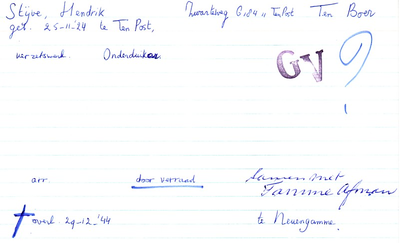 Stijve, Hendrik Zwarteweg G 184 " Ten Post Ten Boer
geb. 25-11-'24 te Ten Post,
verzetswerk. Onderduiker
GV ?
!
arr. door verraad samen met
Tamme Afman
overl. 29-12-'44 te Neuengamme.